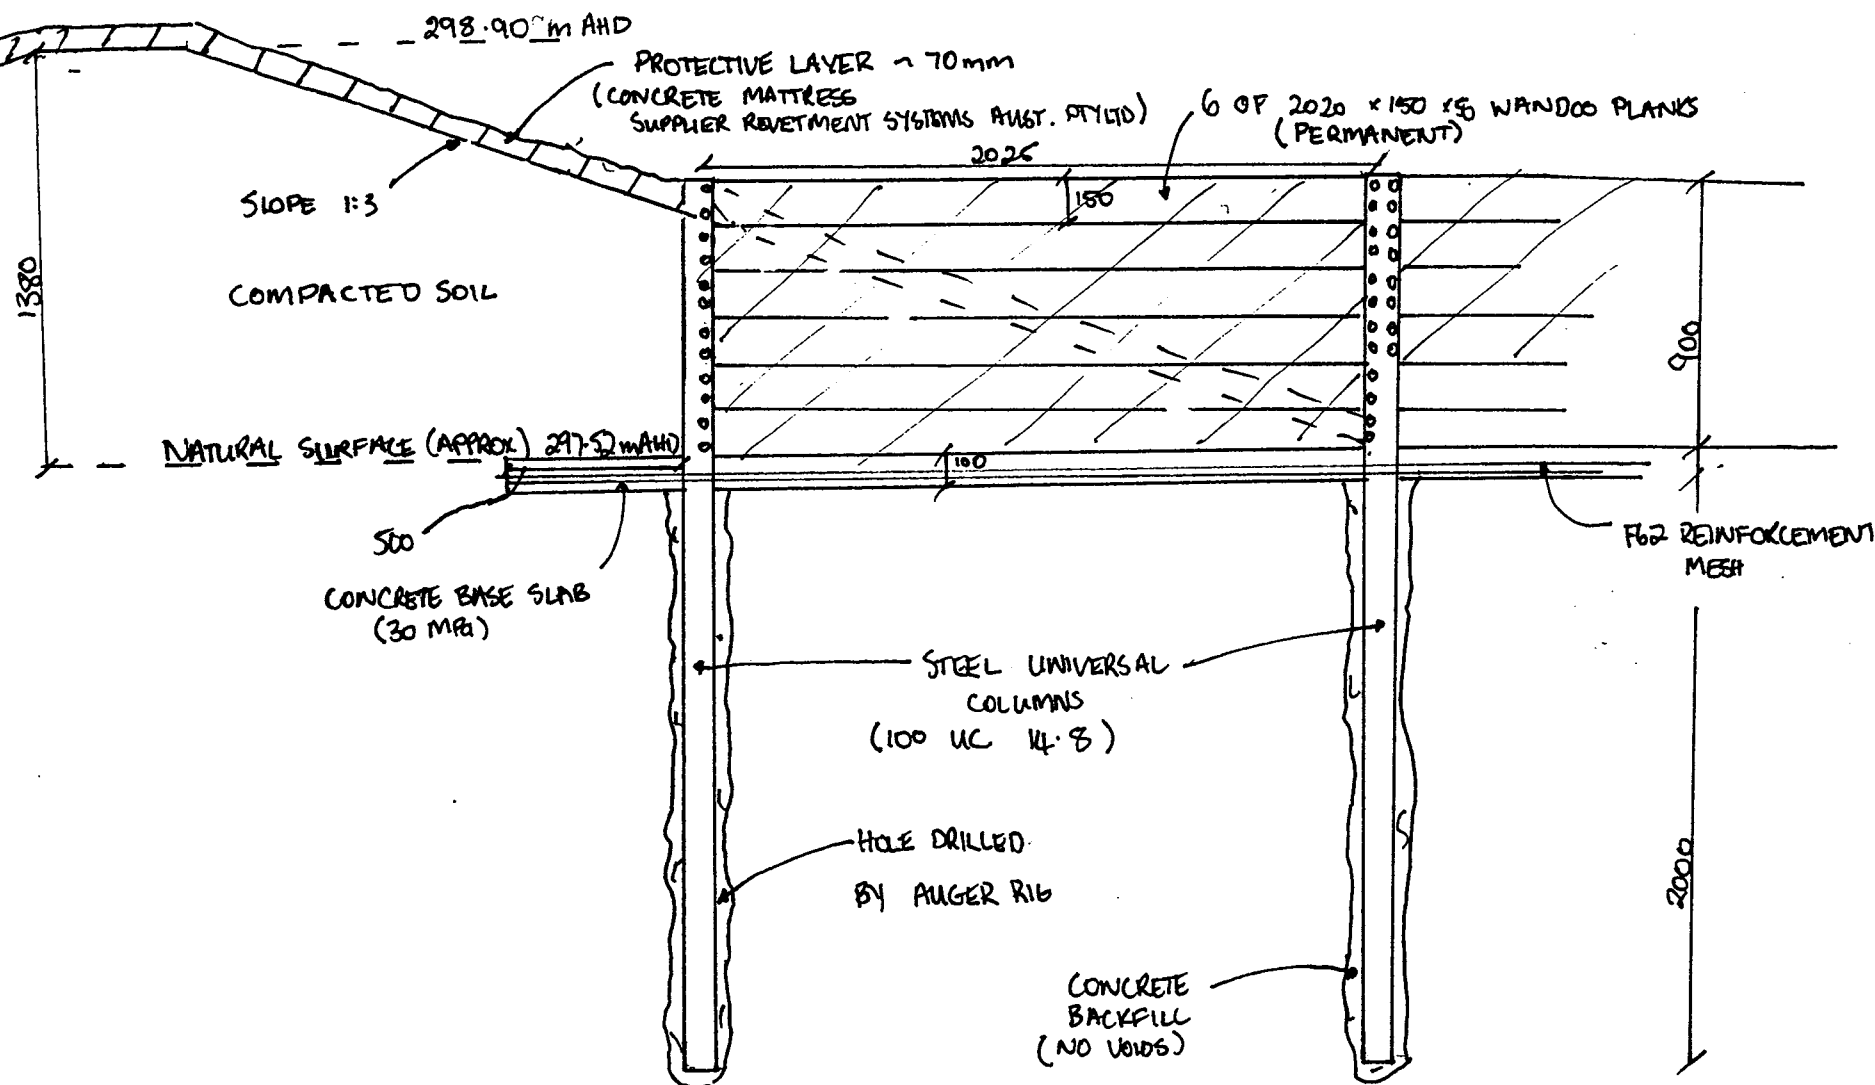 298.90 m AHD
PROTECTIVE LAYER ~ 70mm
(CONCRETE MATTRESS
SUPPLIER REVETMENT SYSTEMS AUST. PTY LTD)
6 OF 2020 × 150 × 50 WANDOO PLANKS
(PERMANENT)
2025
150
SLOPE 1:3
1380
COMPACTED SOIL
900
NATURAL SURFACE (APPROX) 297.52 mAHD
100
500
F62 REINFORCEMENT
MESH
CONCRETE BASE SLAB
(30 MPa)
STEEL UNIVERSAL
COLUMNS
(100 UC 14.8)
HOLE DRILLED
BY AUGER RIG
2000
CONCRETE
BACKFILL
(NO VOIDS)